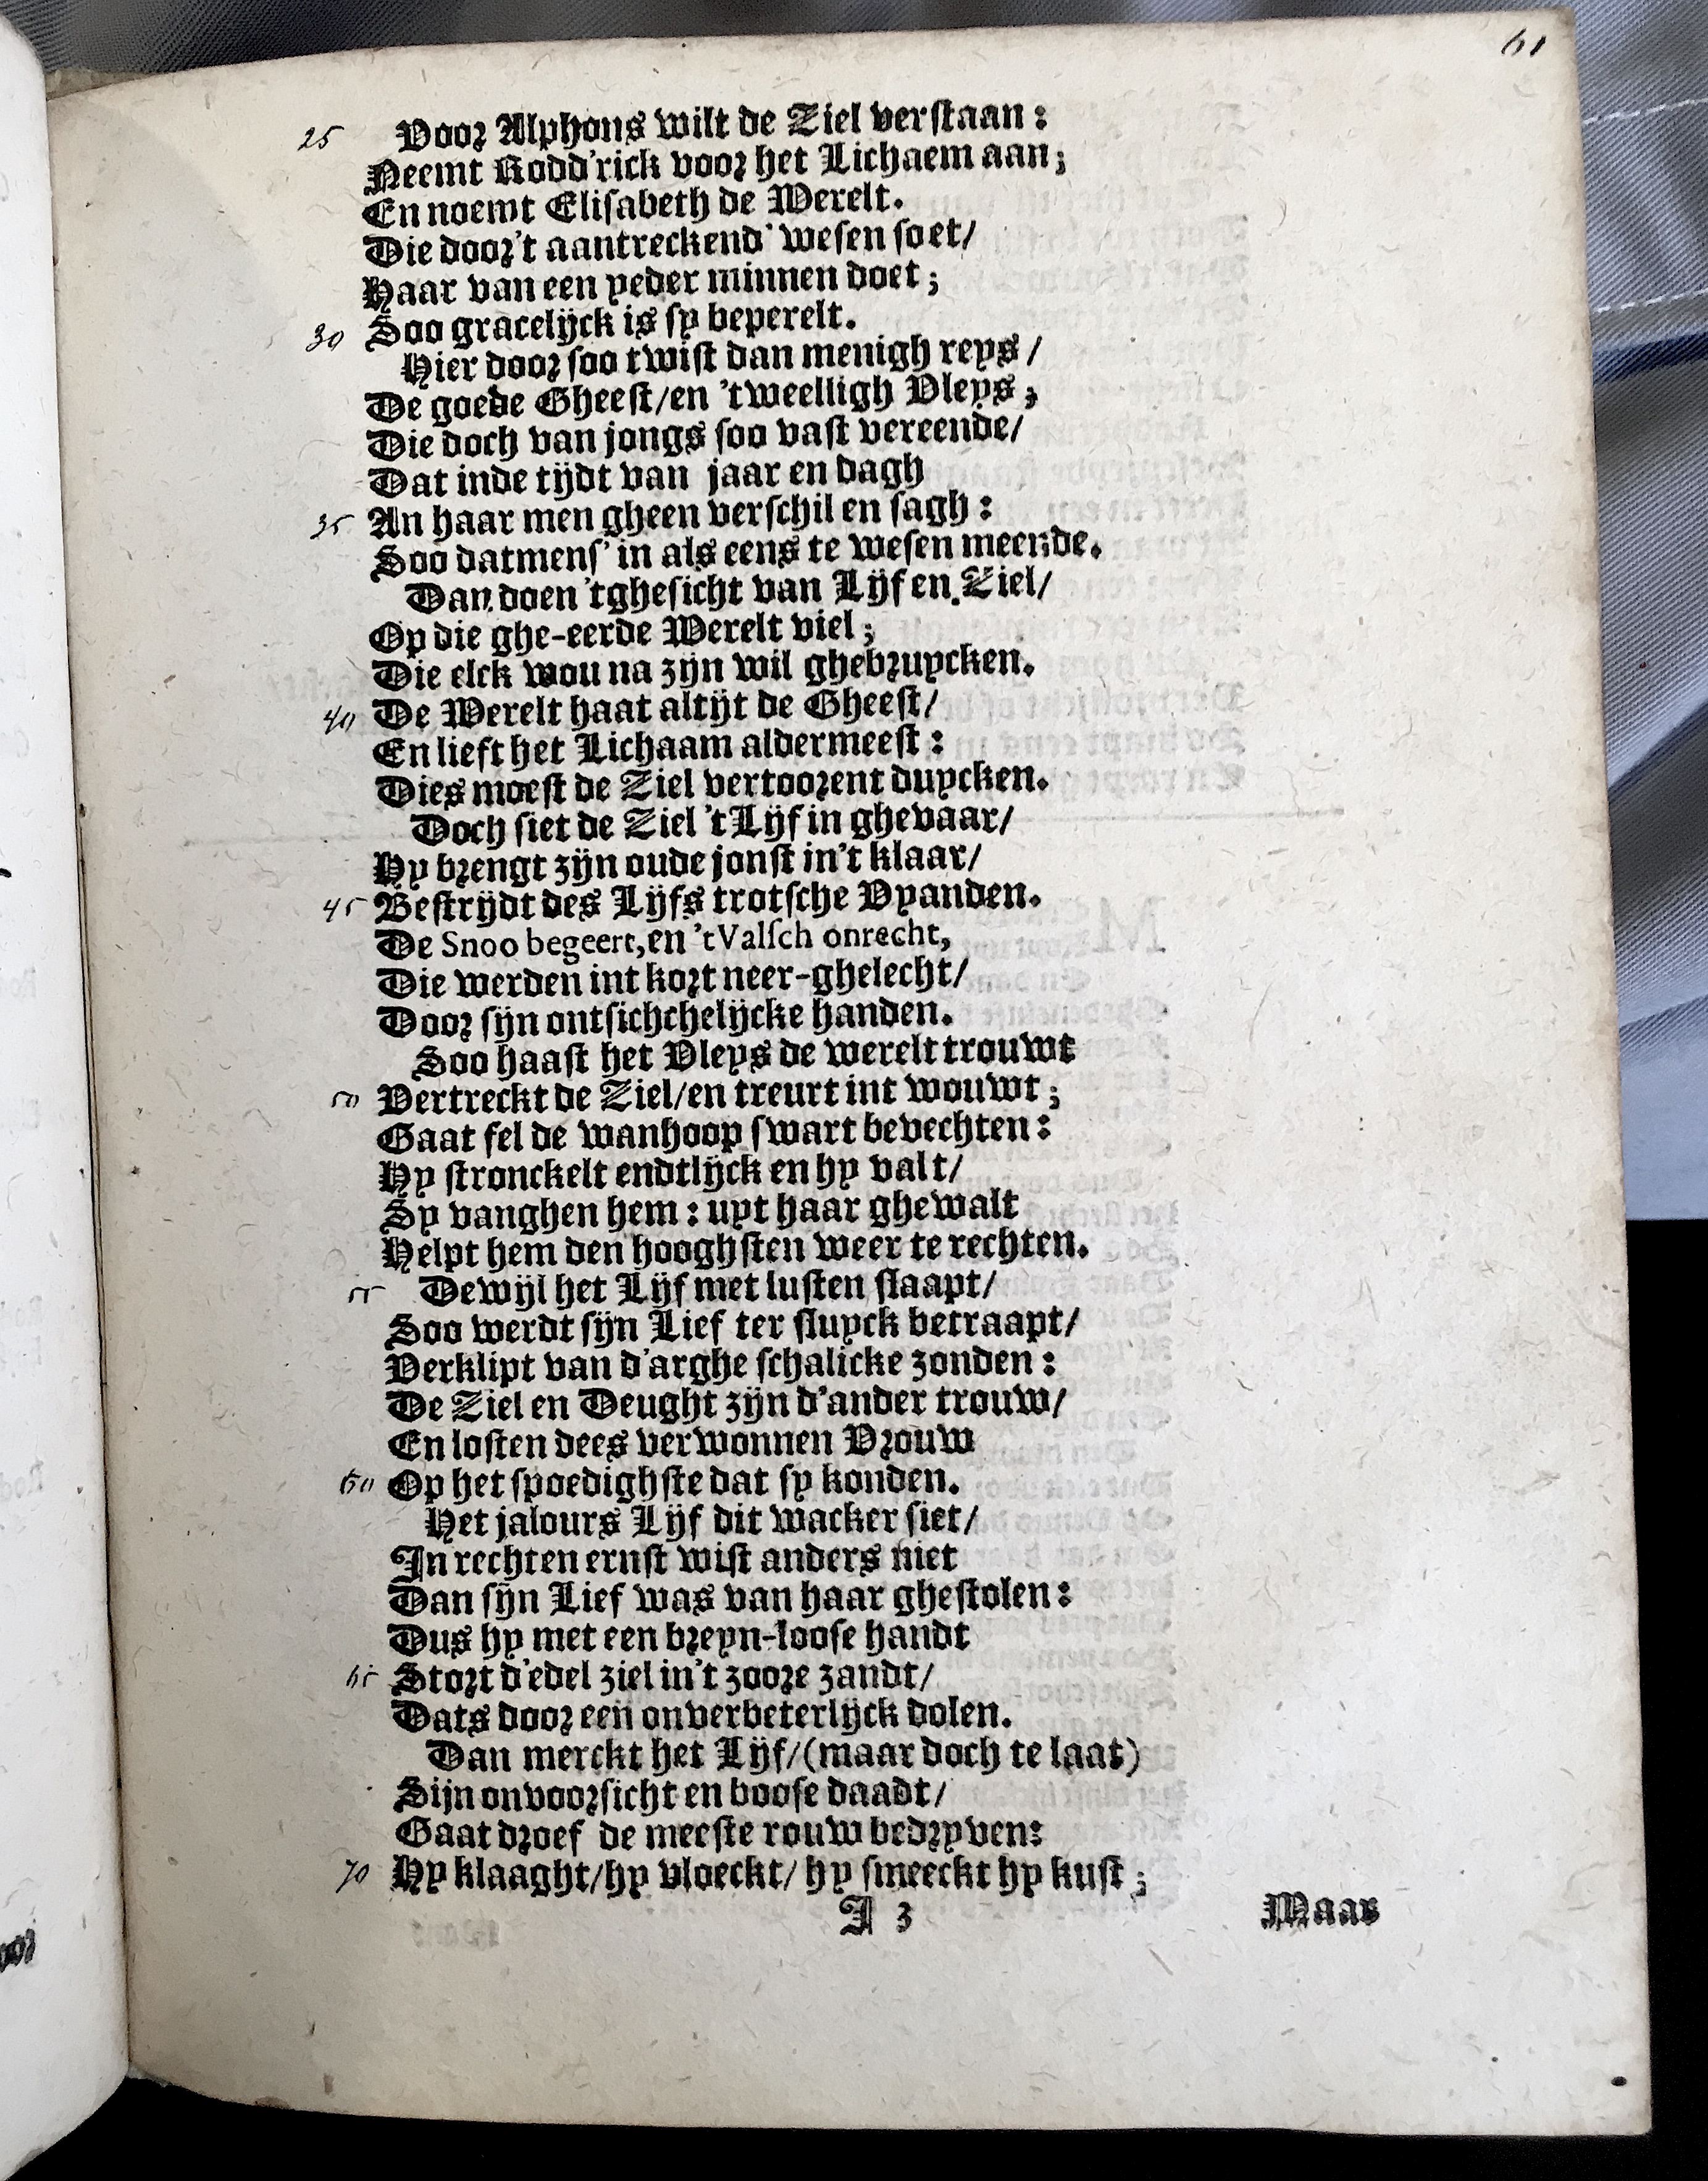 61
25 Voor Alphons wilt de Ziel verstaan:
Neemt Rodd'rick voor het Lichaem aan;
En noemt Elisabeth de Werelt.
Die door't aantreckend' wesen soet/
Haar van een yeder minnen doet;
30 Soo gracelijck is sy beperelt.
Hier door soo twist dan menigh reys/
De goede Gheest/en 'tweelligh Vleys;
Die doch van jongs soo vast vereende/
Dat inde tijdt van jaar en dagh
35 An haar men gheen verschil en sagh:
Soo datmens' in als eens te wesen meende.
Dan doen 'tghesicht van Lijf en Ziel/
Op die ghe-eerde Werelt viel;
Die elck wou na zijn wil ghebruycken.
40 De Werelt haat altijt de Gheest/
En lieft het Lichaam aldermeest:
Dies moest de Ziel vertoorent duycken.
Doch siet de Ziel 't Lijf in ghevaar/
Hy brengt zijn oude jonst in't klaar/
45 Bestrijdt des Lijfs trotsche Vyanden.
De Snoo begeert, en 't Valsch onrecht,
Die werden int kort neer-ghelecht/
Door sijn ontsichchelijcke handen.
Soo haast het Vleys de werelt trouwt
50 Vertreckt de Ziel/en treurt int wouwt;
Gaat fel de wanhoop swart bevechten:
Hy stronckelt endtlijck en hy valt/
Sy vanghen hem: uyt haar ghewalt
Helpt hem den hooghsten weer te rechten.
55 Dewijl het Lijf met lusten slaapt/
Soo werdt sijn Lief ter sluyck betraapt/
Verklipt van d'arghe schalicke zonden:
De Ziel en Deught zijn d'ander trouw/
En losten dees verwonnen Vrouw
60 Op het spoedighste dat sy konden.
Het jalours Lijf dit wacker siet/
In rechten ernst wist anders niet
Dan sijn Lief was van haar ghestolen:
Dus hy met een breyn-loose handt
65 Stort d'edel ziel in't zoore zandt/
Dats door een onverbeterlijck dolen.
Dan merckt het Lijf/(maar doch te laat)
Sijn onvoorsicht en boose daadt/
Gaat droef de meeste rouw bedryven:
70 Hy klaaght/hy vloeckt/ hy smeeckt hy kust;
I 3 Maar